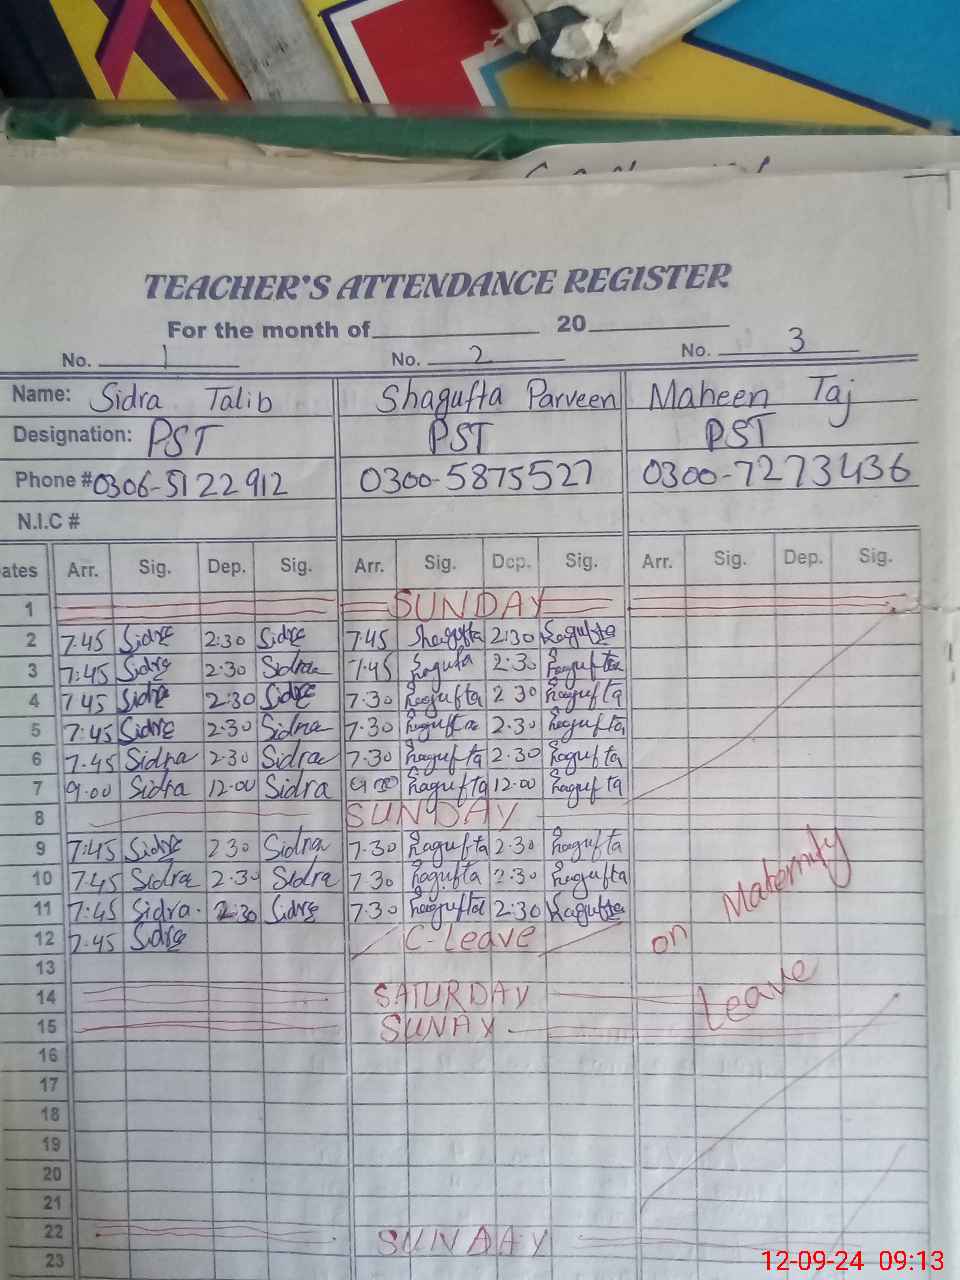 TEACHER'S ATTENDANCE REGISTER
For the month of 20
No. 1 No. 2 No. 3
Name: Sidra Talib Shagufta Parveen Maheen Taj
Designation: PST PST PST
Phone # 0306-5122912 0300-5875527 0300-7273436
N.I.C #
ates Arr. Sig. Dep. Sig. Arr. Sig. Dep. Sig. Arr. Sig. Dep. Sig.
1 SUNDAY
2 7.45 Sidra 2:30 Sidra 7.45 Shagufta 2:30 Shagufta
3 7:45 Sidra 2:30 Sidraa 7.45 Shagufa 2:30 Shagufta
4 7 45 Sidra 2:30 Sidra 7.30 Shagufta 2 30 Shagufta
5 7:45 Sidra 2.30 Sidra 7.30 Shagufta 2.30 Shagufta
6 7.45 Sidra 2.30 Sidraa 7.30 Shagufta 2.30 Shagufta
7 9.00 Sidra 12.00 Sidra 9 00 Shagufta 12.00 Shagufta
8 SUNDAY
9 7:45 Sidra 2 30 Sidra 7.30 Shagufta 2.30 Shagufta
10 7.45 Sidra 2.30 Sidra 7 30 Shagufta 2.30 Shagufta
11 7:45 Sidra. 2:30 Sidra 7.30 Shagufta 2:30 Shagufta
12 7.45 Sidra C-Leave
on Maternity
13
14 SATURDAY
Leave
15 SUNAY
16
17
18
19
20
21
22 SUNDAY
23
12-09-24 09:13